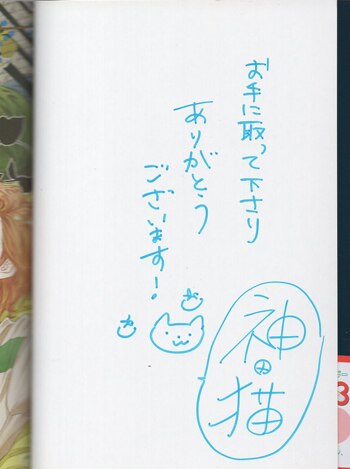 お手に取って下さり
ありがとう
ございます!
神の猫